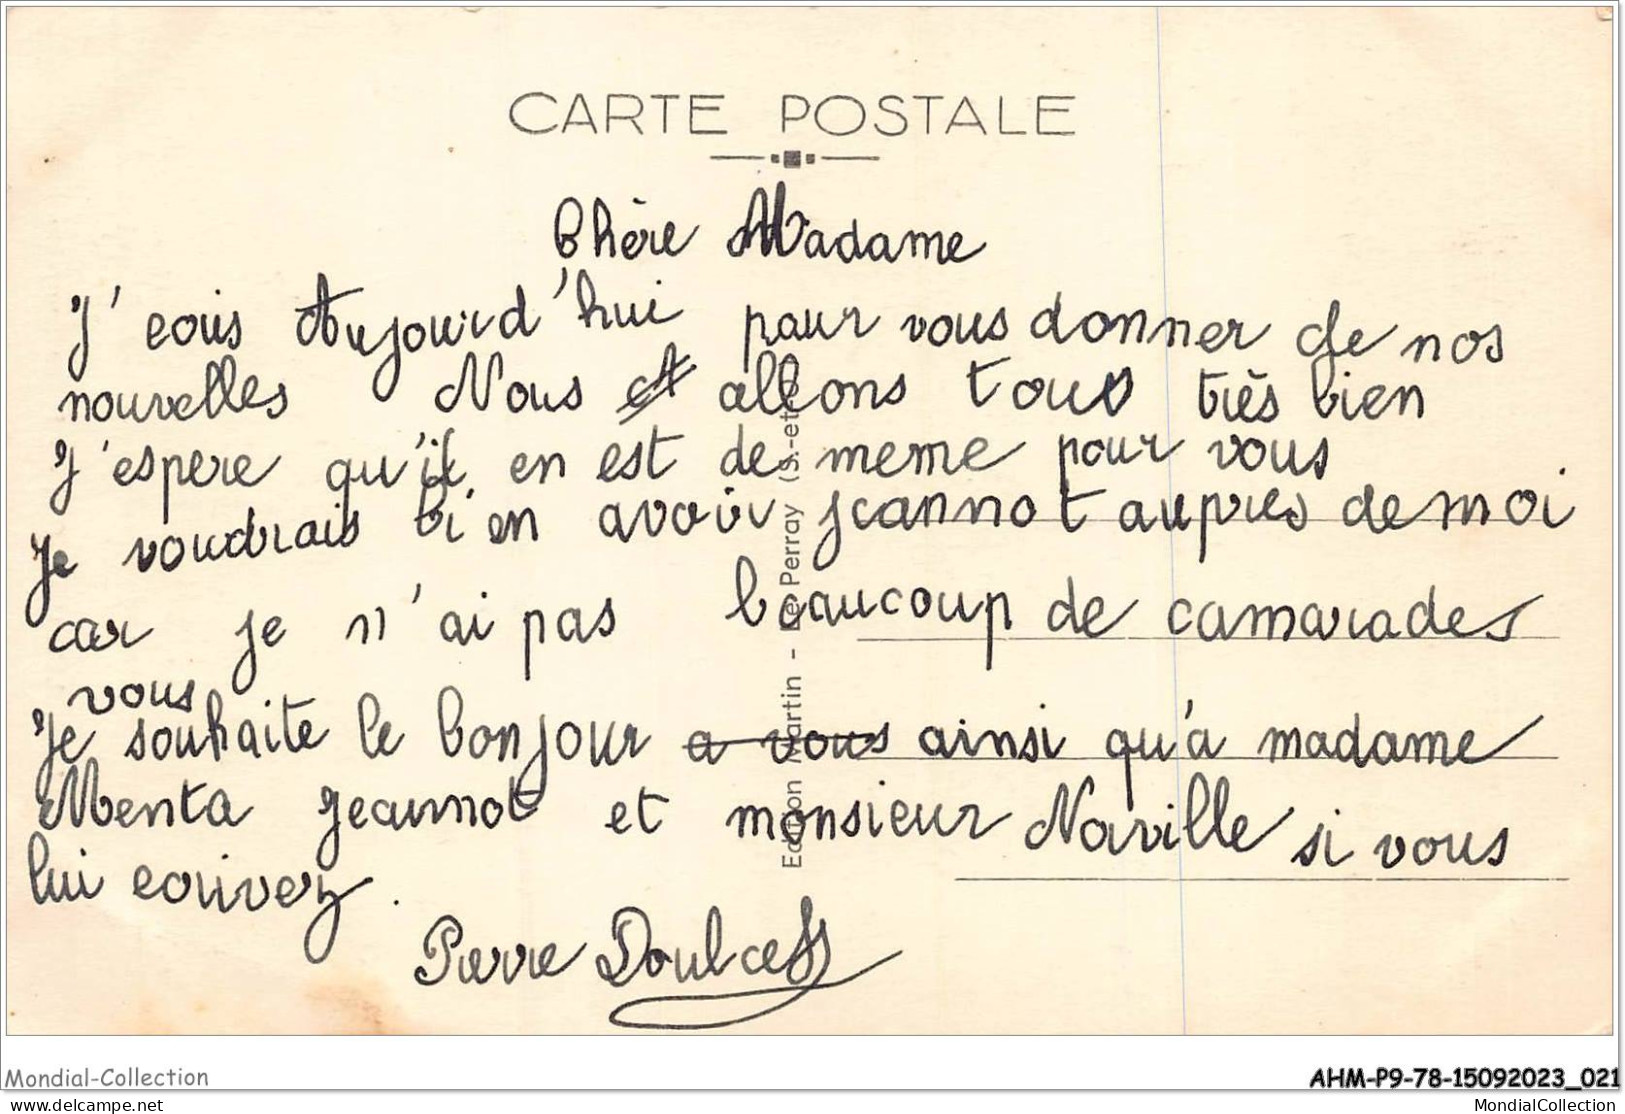 CARTE POSTALE
Chère Madame
J'ecris Aujourd'hui pour vous donner de nos
nouvelles Nous allons tous très bien
J'espere qu'il en est de meme pour vous
Je voudrais bien avoir jeannot aupres de moi
car je n'ai pas beaucoup de camarades
vous
Je souhaite le bonjour a vous ainsi qu'à madame
Menta jeannot et monsieur Naville si vous
lui ecrivez.
Pierre
Edition Martin - Le Perray (S.-et-
Mondial-Collection
AHM-P9-78-15092023_021
delcampe.net
MondialCollection